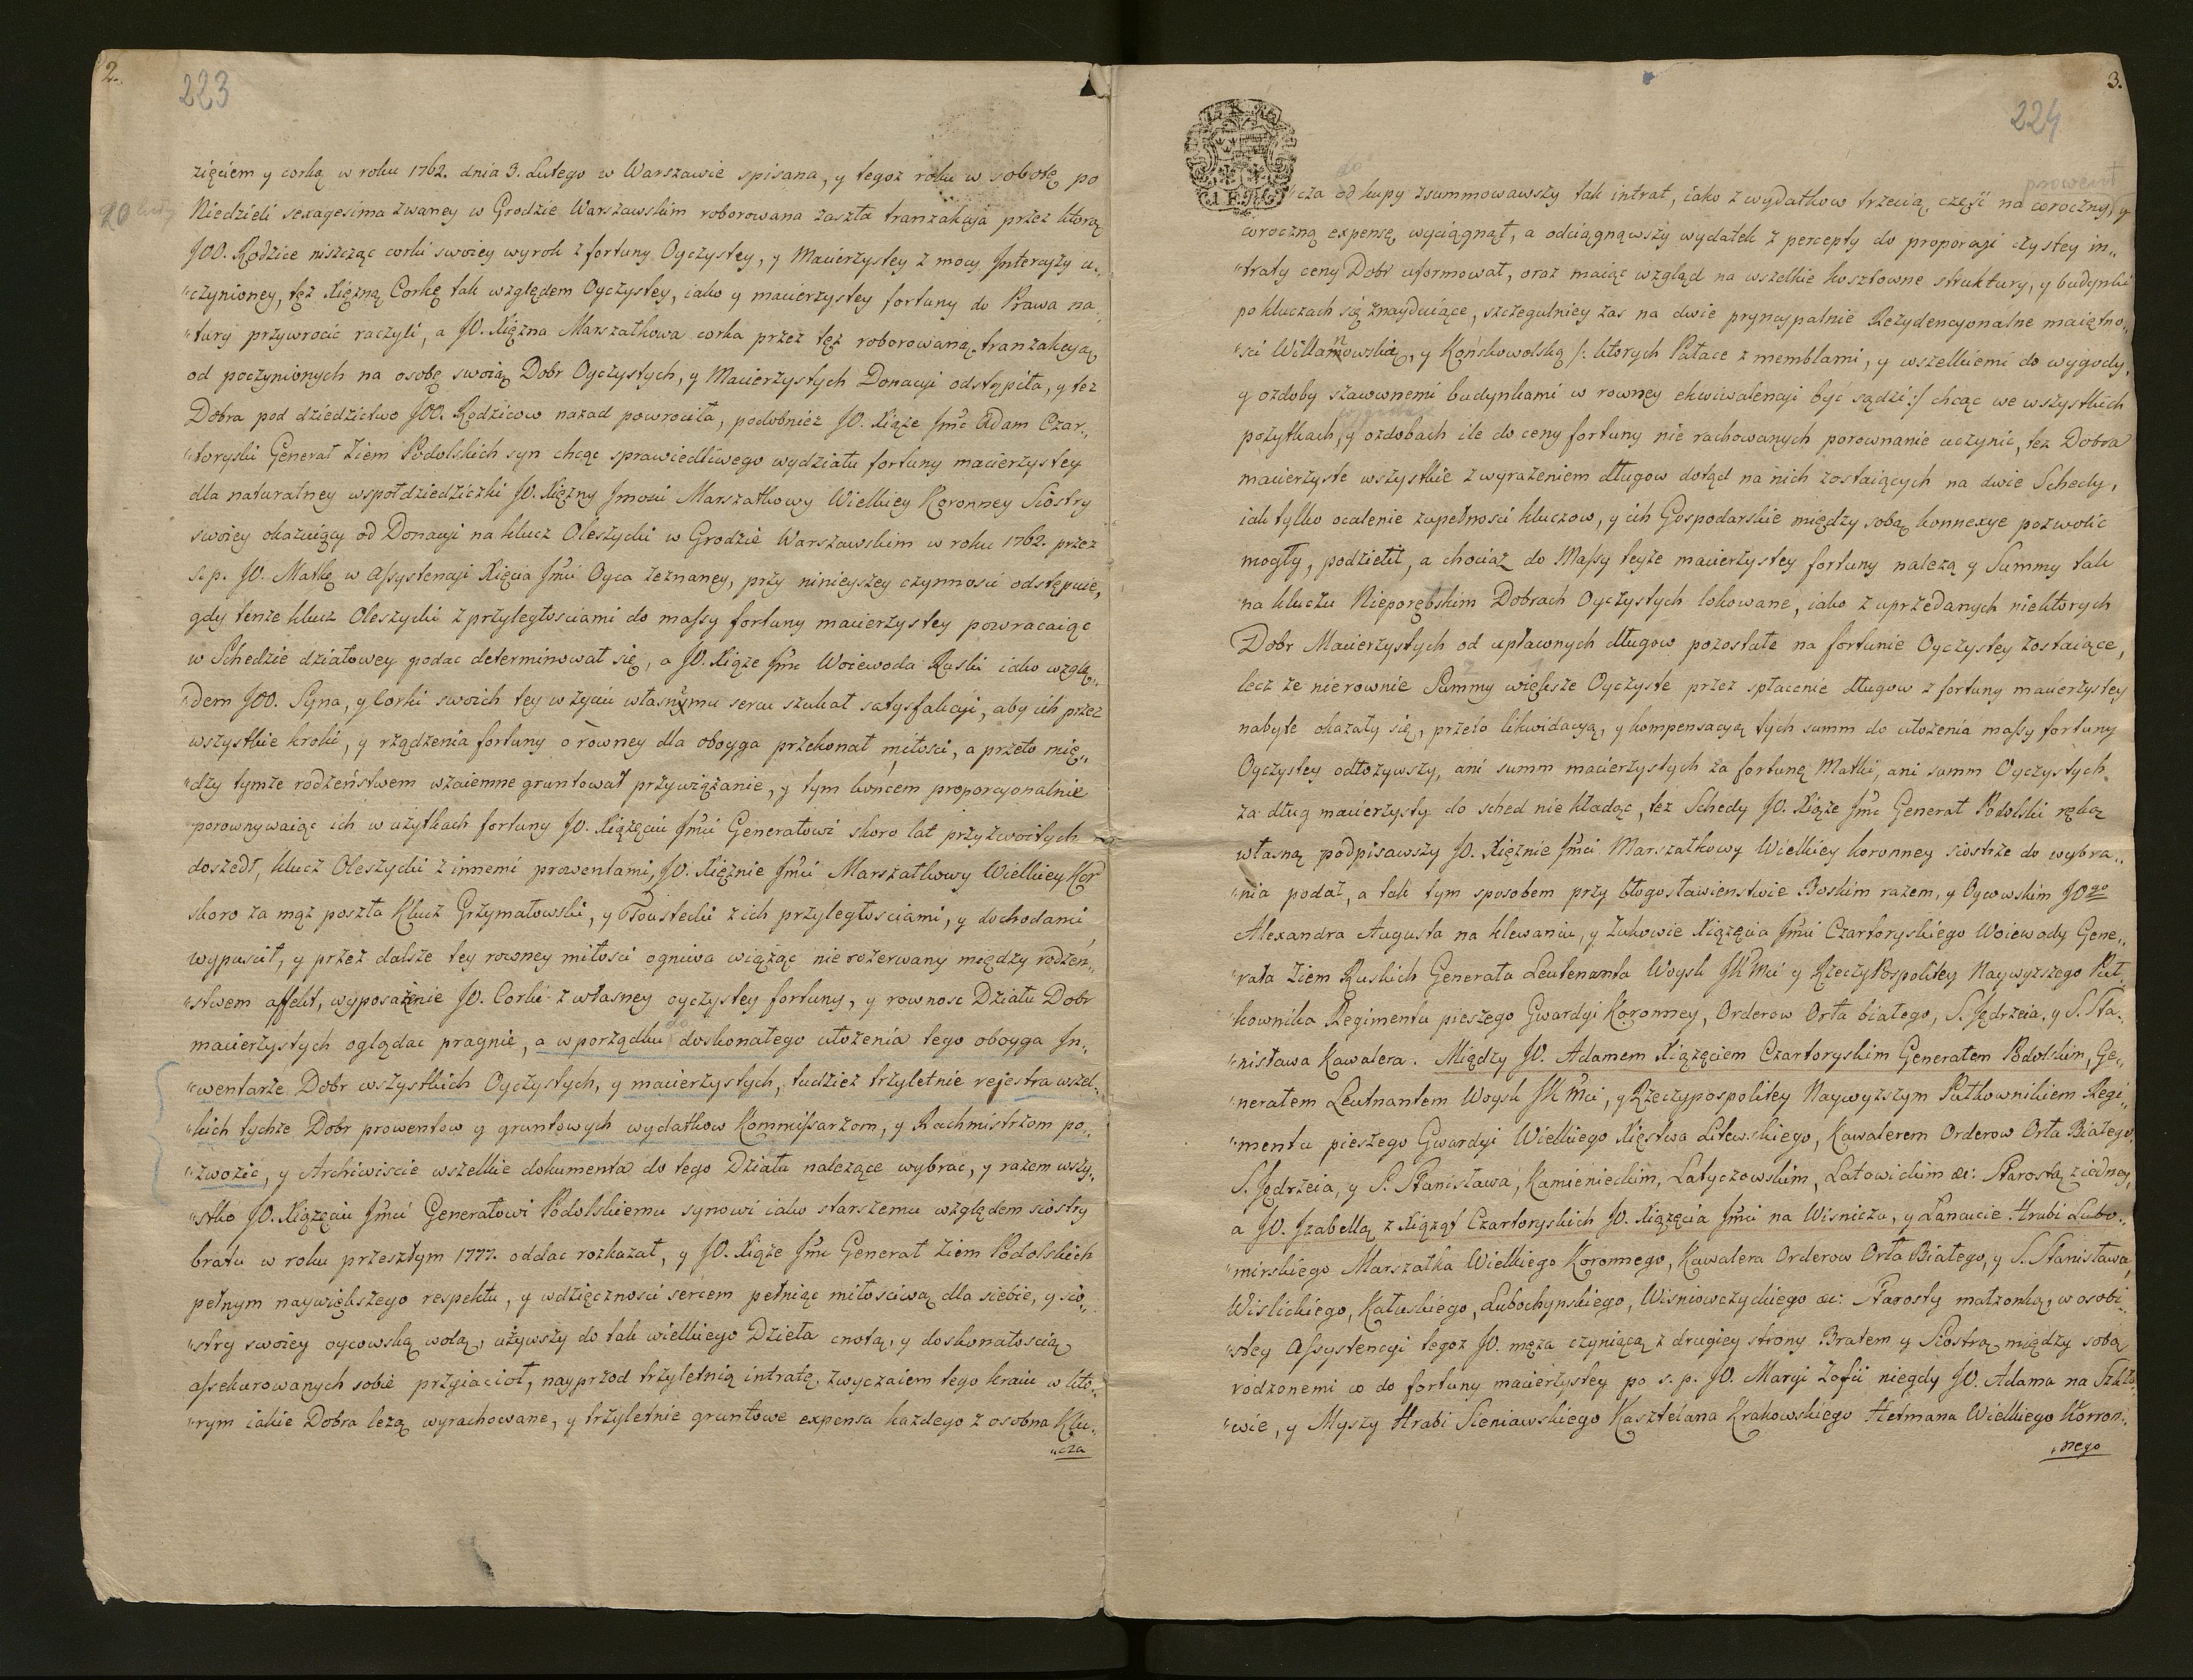 2.
223
zięciem y corką w roku 1762. dnia 3. Lutego w Warszawie spisana, y tegoz roku w sobotę po
20 luty
Niedzieli sexagesima zwaney w Grodzie Warszawskim roborowana zaszła tranzakcya przez ktorą
JOO. Rodzice niszcząc corki swoiey wyrok z fortuny Oyczystey, y Macierzystey z mocy Intercyzy u„
„czynioney, też Xiężną Corkę tak względem Oyczystey, iako y macierzystey fortuny do Prawa na„
„tury przywrocić raczyli, a JO. Xiężna Marszałkowa corka przez też roborowaną tranzakcyą
od poczynionych na osobę swoią Dobr Oyczystych, y Macierzystych Donacyi odstąpiła, y też
Dobra pod dziedzictwo JOO. Rodzicow nazad powrociła, podobnież JO. Xiąże Jmć Adam Czar„
„toryski Generał Ziem Podolskich syn chcąc sprawiedliwego wydziału fortuny macierzystey
dla naturalney wspołdziedziczki JO. Xiężny Jmości Marszałkowy Wielkiey Koronney Siostry
swoiey okazuiący od Donacyi na klucz Oleszycki w Grodzie Warszawskim w roku 1762. przez
s. p. JO. Matkę w assystencyi Xięcia Jmći Oyca zeznaney, przy ninieyszey czynnosci odstępuie,
gdy tenże klucz Oleszycki z przyległosciami do massy fortuny macierzystey powracaiąc
w Schedzie działowey podac determinował się, a JO. Xiąże Jmć Woiewoda Ruski iako wzglę„
„dem JOO. Syna, y Corki swoich tey w życiu własnemu sercu szukał satysfakcyi, aby ich przez
wszystkie kroki, y rządzenia fortuny o rowney dla oboyga przekonał miłosci, a przeto mię„
„dzy tymże rodzeństwem wzaiemne gruntował przywiązanie, y tym końcem proporcyonalnie
porownywaiąc ich w użytkach fortuny JO. Xiążęciu Jmći Generałowi skoro lat przyzwoitych
doszedł, klucz Oleszycki z innemi prowentami, JO. Xiężnie Jmći Marszałkowy Wielkiey Kor
skoro za mąż poszła Klucz Grzymałowski, y Toustecki z ich przyległosciami, y dochodami
wypuscił, y przez dalsze tey rowney miłosci ogniwa wiążąc nierozerwany między rodzeń„
„stwem affekt, wyposażenie JO. Corki z własney oyczystey fortuny, y rownosc Działu Dobr
macierzystych oglądac pragnie, a w porządku do doskonałego ułożenia tego oboyga In„
„wentarze Dobr wszystkich Oyczystych, y macierzystych, tudzież trzyletnie rejestra wszel„
„kich tychże Dobr prowentow y gruntowych wydatkow Kommissarzom, y Rachmistrzom po„
„zwozic, y Archiwiscie wszelkie dokumenta do tego Działu należące wybrac, y razem wszy„
„stko JO. Xiążęciu Jmći Generałowi Podolskiemu synowi iako starszemu względem siostry
bratu w roku przeszłym 1777. oddac rozkazał, y JO. Xiąże Jmć Generał Ziem Podolskich
pełnym naywiększego respektu, y wdzięcznosci sercem pełniąc miłosciwą dla siebie, y sio„
„stry swoiey oycowską wolą, używszy do tak wielkiego Dzieła cnotą, y doskonałoscią
assekurowanych sobie przyiacioł, nayprzod trzyletnią intratę zwyczaiem tego kraiu w kto„
„rym iakie Dobra leżą wyrachowane, y trzyletnie gruntowe expensa każdego z osobna Klu„
„cza
3.
224
do
prowent
„cza od kupy zsummowawszy tak intrat, iako z wydatkow trzecią część na coroczny y
coroczną expensę wyciągnął, a odciągnąwszy wydatek z percepty do proporcyi czystey in„
„traty ceny Dobr uformował, oraz maiąc wzgląd na wszelkie kosztowne struktury, y budynki
po kluczach się znayduiące, szczegulniey zas na dwie pryncypalnie Rezydencyonalne maiętno„
„sci Willannowską, y Końskowolską /: ktorych Pałace z memblami, y wszelkiemi do wygody,
y ozdoby stawownemi budynkami w rowney ekwiwalencyi być sądzi :/ chcąc we wszystkich
pożytkach, y ozdobach ile do ceny fortuny nie rachowanych porownanie uczynić, też Dobra
macierzyste wszystkie z wyrażeniem długow dotąd na nich zostaiących na dwie Schedy,
iak tylko ocalenie zupełnosci kluczow, y ich Gospodarskie między sobą konnexye pozwolić
mogły, podzielił, a chociaż do Massy teyże macierzystey fortuny należą y Summy tak
na kluczu Nieporębskim Dobrach Oyczystych lokowane, iako z uprzedanych niektorych
Dobr Macierzystych od upławnych długow pozostałe na fortunie Oyczystey zostaiące,
lecz że nierownie Summy większe Oyczyste przez spłacenie długow z fortuny macierzystey
nabyte okazały się, przeto likwidacyą, y kompensacyą tych summ do ułożenia massy fortuny
Oyczystey odłożywszy, ani summ macierzystych za fortunę Matki, ani summ Oyczystych
za dług macierzysty do sched nie kładąc, też Schedy JO. Xiąże Jmć Generał Podolski ręką
własną podpisawszy JO. Xiężnie Jmći Marszałkowy Wielkiey koronney siostrze do wybra„
„nia podał, a tak tym sposobem przy błogosławienstwie Boskim razem, y Oycowskim JOgo
Alexandra Augusta na Klewaniu, y Zukowie Xiążęcia Jmći Czartoryskiego Woiewody Gene„
„rała Ziem Ruskich Generała Leutenanta Woysk JKMći y Rzeczy Pospolitey Naywyższego Puł„
„kownika Regimentu pieszego Gwardyi Koronney, Orderow Orła białego, S. Jędrzeia, y S. Sta„
„nisława Kawalera. Między JO. Adamem Xiążęciem Czartoryskim Generałem Podolskim, Ge„
„nerałem Leutnantem Woysk JKMći, y Rzeczypospolitey Naywyższym Pułkownikiem Regi„
„mentu pieszego Gwardyi Wielkiego Xięstwa Litewskiego, Kawalerem Orderow Orła Białego
S. Jędrzeia, y S. Stanisława, Kamienieckim, Latyczowskim, Latowickim &c: Starostą z iedney,
a JO. Izabellą z Xiążąt Czartoryskich JO. Xiążęcia Jmći na Wisniczu, y Łancucie Hrabi Lubo„
„mirskiego Marszałka Wielkiego Koronnego, Kawalera Orderow Orła Białego, y S. Stanisława,
Wislickiego, Kałuskiego, Lubochynskiego, Wisniowczyckiego &c: Starosty małżonką, w osobi„
„stey Assystencyi tegoz JO. męża czyniącą z drugiey strony Bratem y Siostrą między sobą
rodzonemi co do fortuny macierzystey po s. p. JO. Maryi Zofii niegdy JO. Adama na Szkło„
„wie, y Myszy Hrabi Sieniawskiego Kasztelana Krakowskiego Hetmana Wielkiego Korron„
„nego